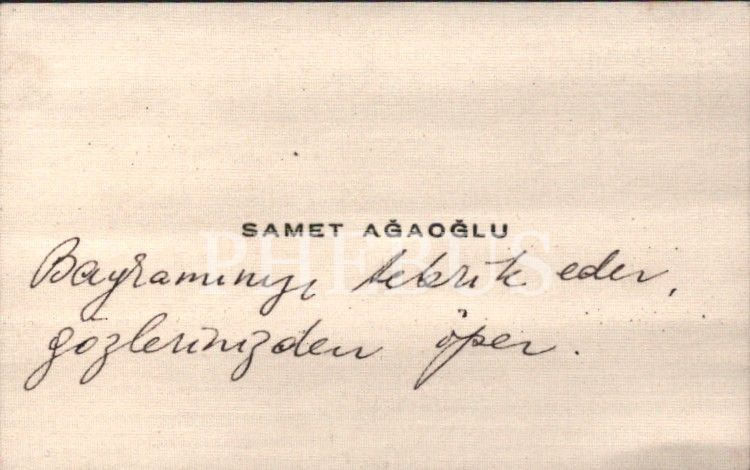 SAMET AĞAOĞLU
PHEBUS
Bayramınızı tebrik eder,
gözlerinizden öper.